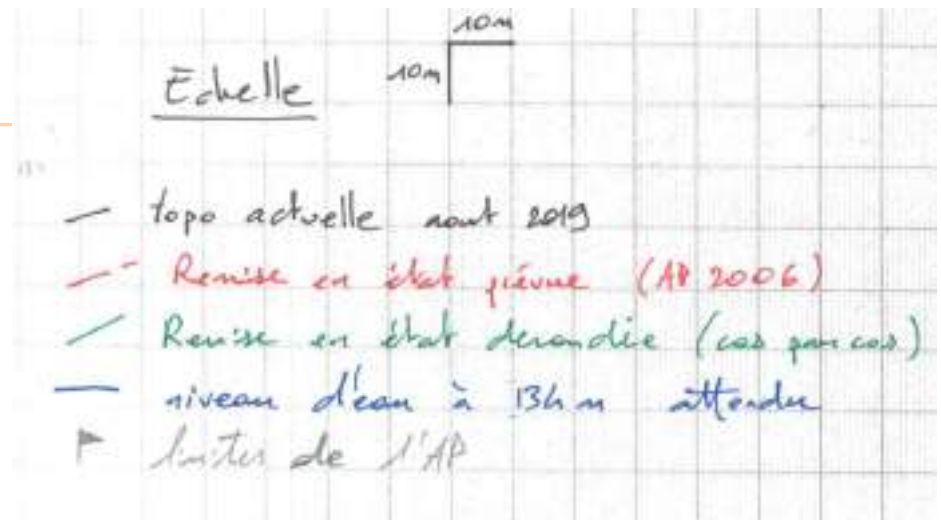 10m
10m
Echelle
topo actuelle aout 2019
Remise en état prévue (AP 2006)
Remise en état demandée (cas par cas)
niveau d'eau à 134 m attendu
limites de l'AP